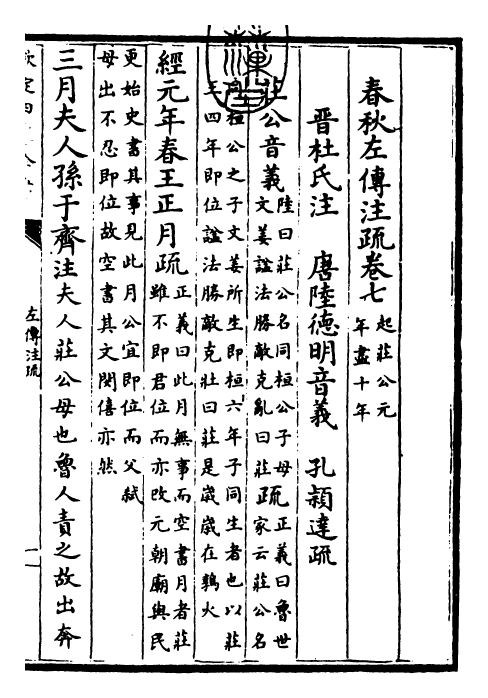 春秋左傳注疏卷七
起莊公元
年盡十年
晉杜氏注　唐陸德明音義　孔穎達疏
莊公音義
陸曰莊公名同桓公子母
文姜諡法勝敵克亂曰莊
疏
正義曰魯世
家云莊公名
同桓公之子文姜所生即桓六年子同生者也以莊
王四年即位諡法勝敵克壯曰莊是歲歲在鶉火
經元年春王正月疏
正義曰此月無事而空書月者莊
雖不即君位而亦改元朝廟與民
更始史書其事見此月公宜即位而父弑
母出不忍即位故空書其文閔僖亦然
三月夫人孫于齊注夫人莊公母也魯人責之故出奔
左傳注疏
一